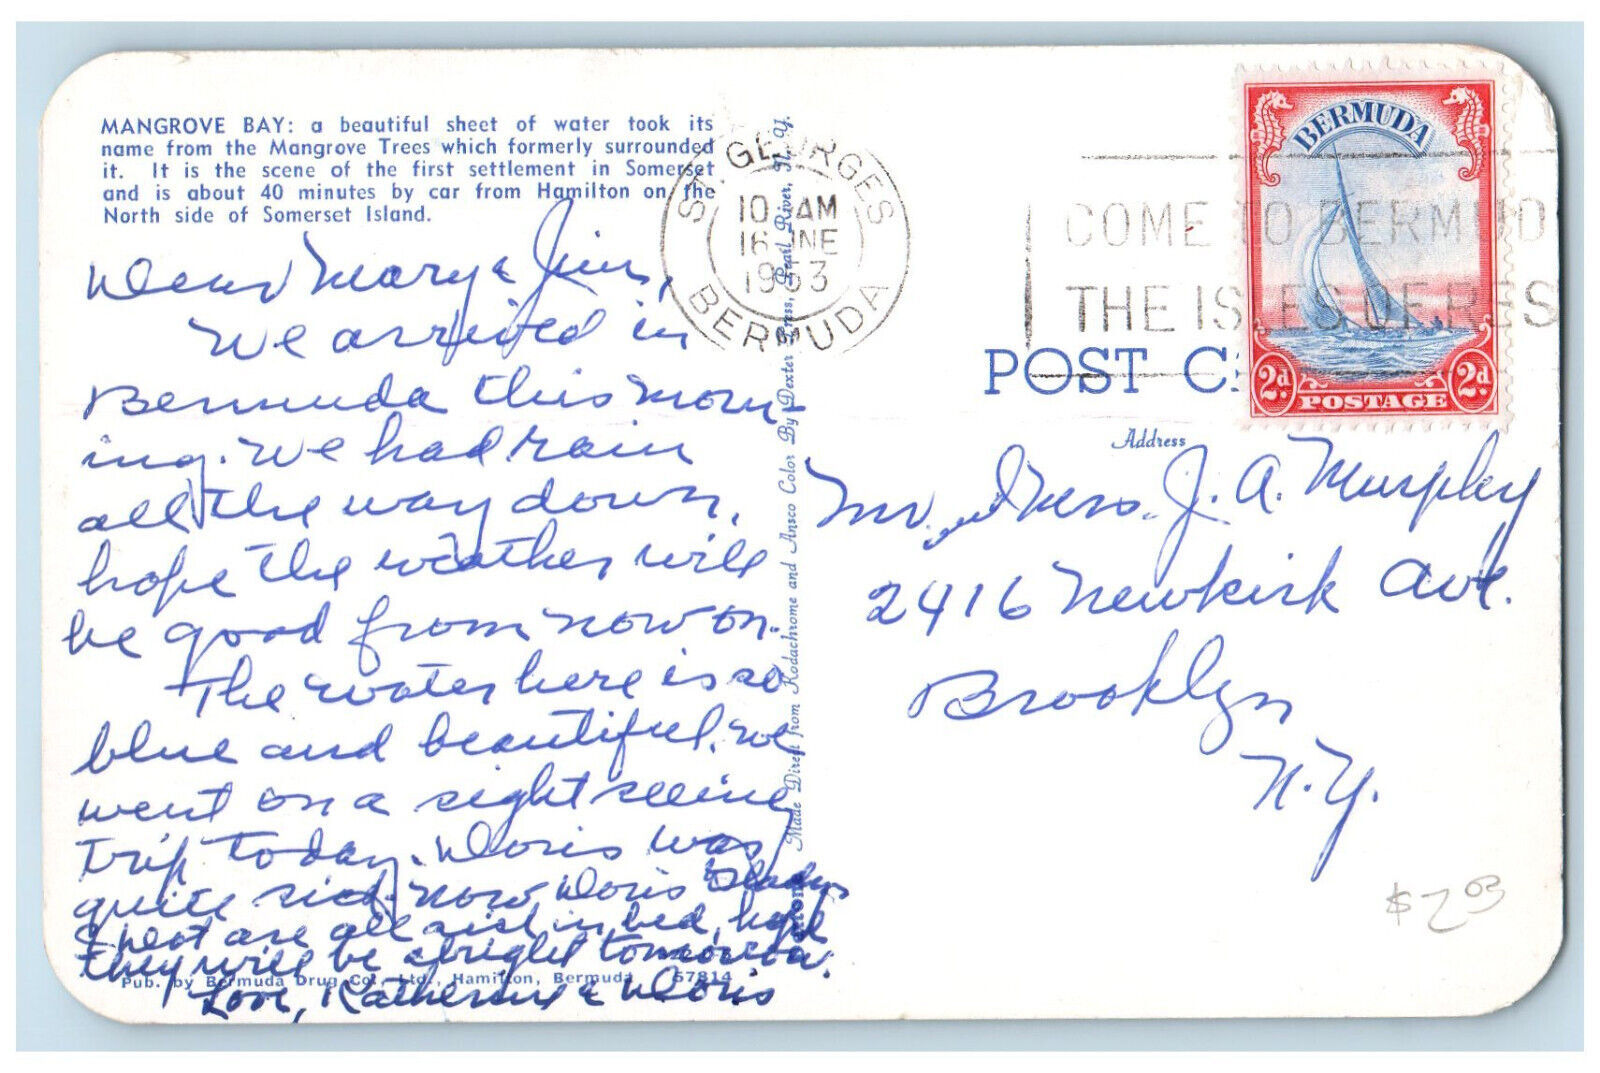 MANGROVE BAY: a beautiful sheet of water took its
name from the Mangrove Trees which formerly surrounded
it. It is the scene of the first settlement in Somerset
and is about 40 minutes by car from Hamilton on the
North side of Somerset Island.
Dear Mary & Jim,
We arrived in
Bermuda this morn-
ing. We had rain
all the way down,
hope the weather will
be good from now on.
The water here is so
blue and beautiful, we
went on a sight seeing
trip today. Doris was
quite sick. Now Doris Gladys
& Dot are all in bed, hope
they will be alright tomorrow.
Love, Katherine & Doris
Pub. by Bermuda Drug Co., Ltd., Hamilton, Bermuda 57814
Made Direct from Kodachrome and Ansco Color By Dexter Press, Pearl River, N. Y.
ST. GEORGES
10 AM
16 JNE
1953
BERMUDA
COME TO BERMUD
THE ISLES OF RES
BERMUDA
2d. 2d.
POSTAGE
POST C
Address
Mr. and Mrs. J. A. Murphy
2416 Newkirk Ave.
Brooklyn
N.Y.
$2.03